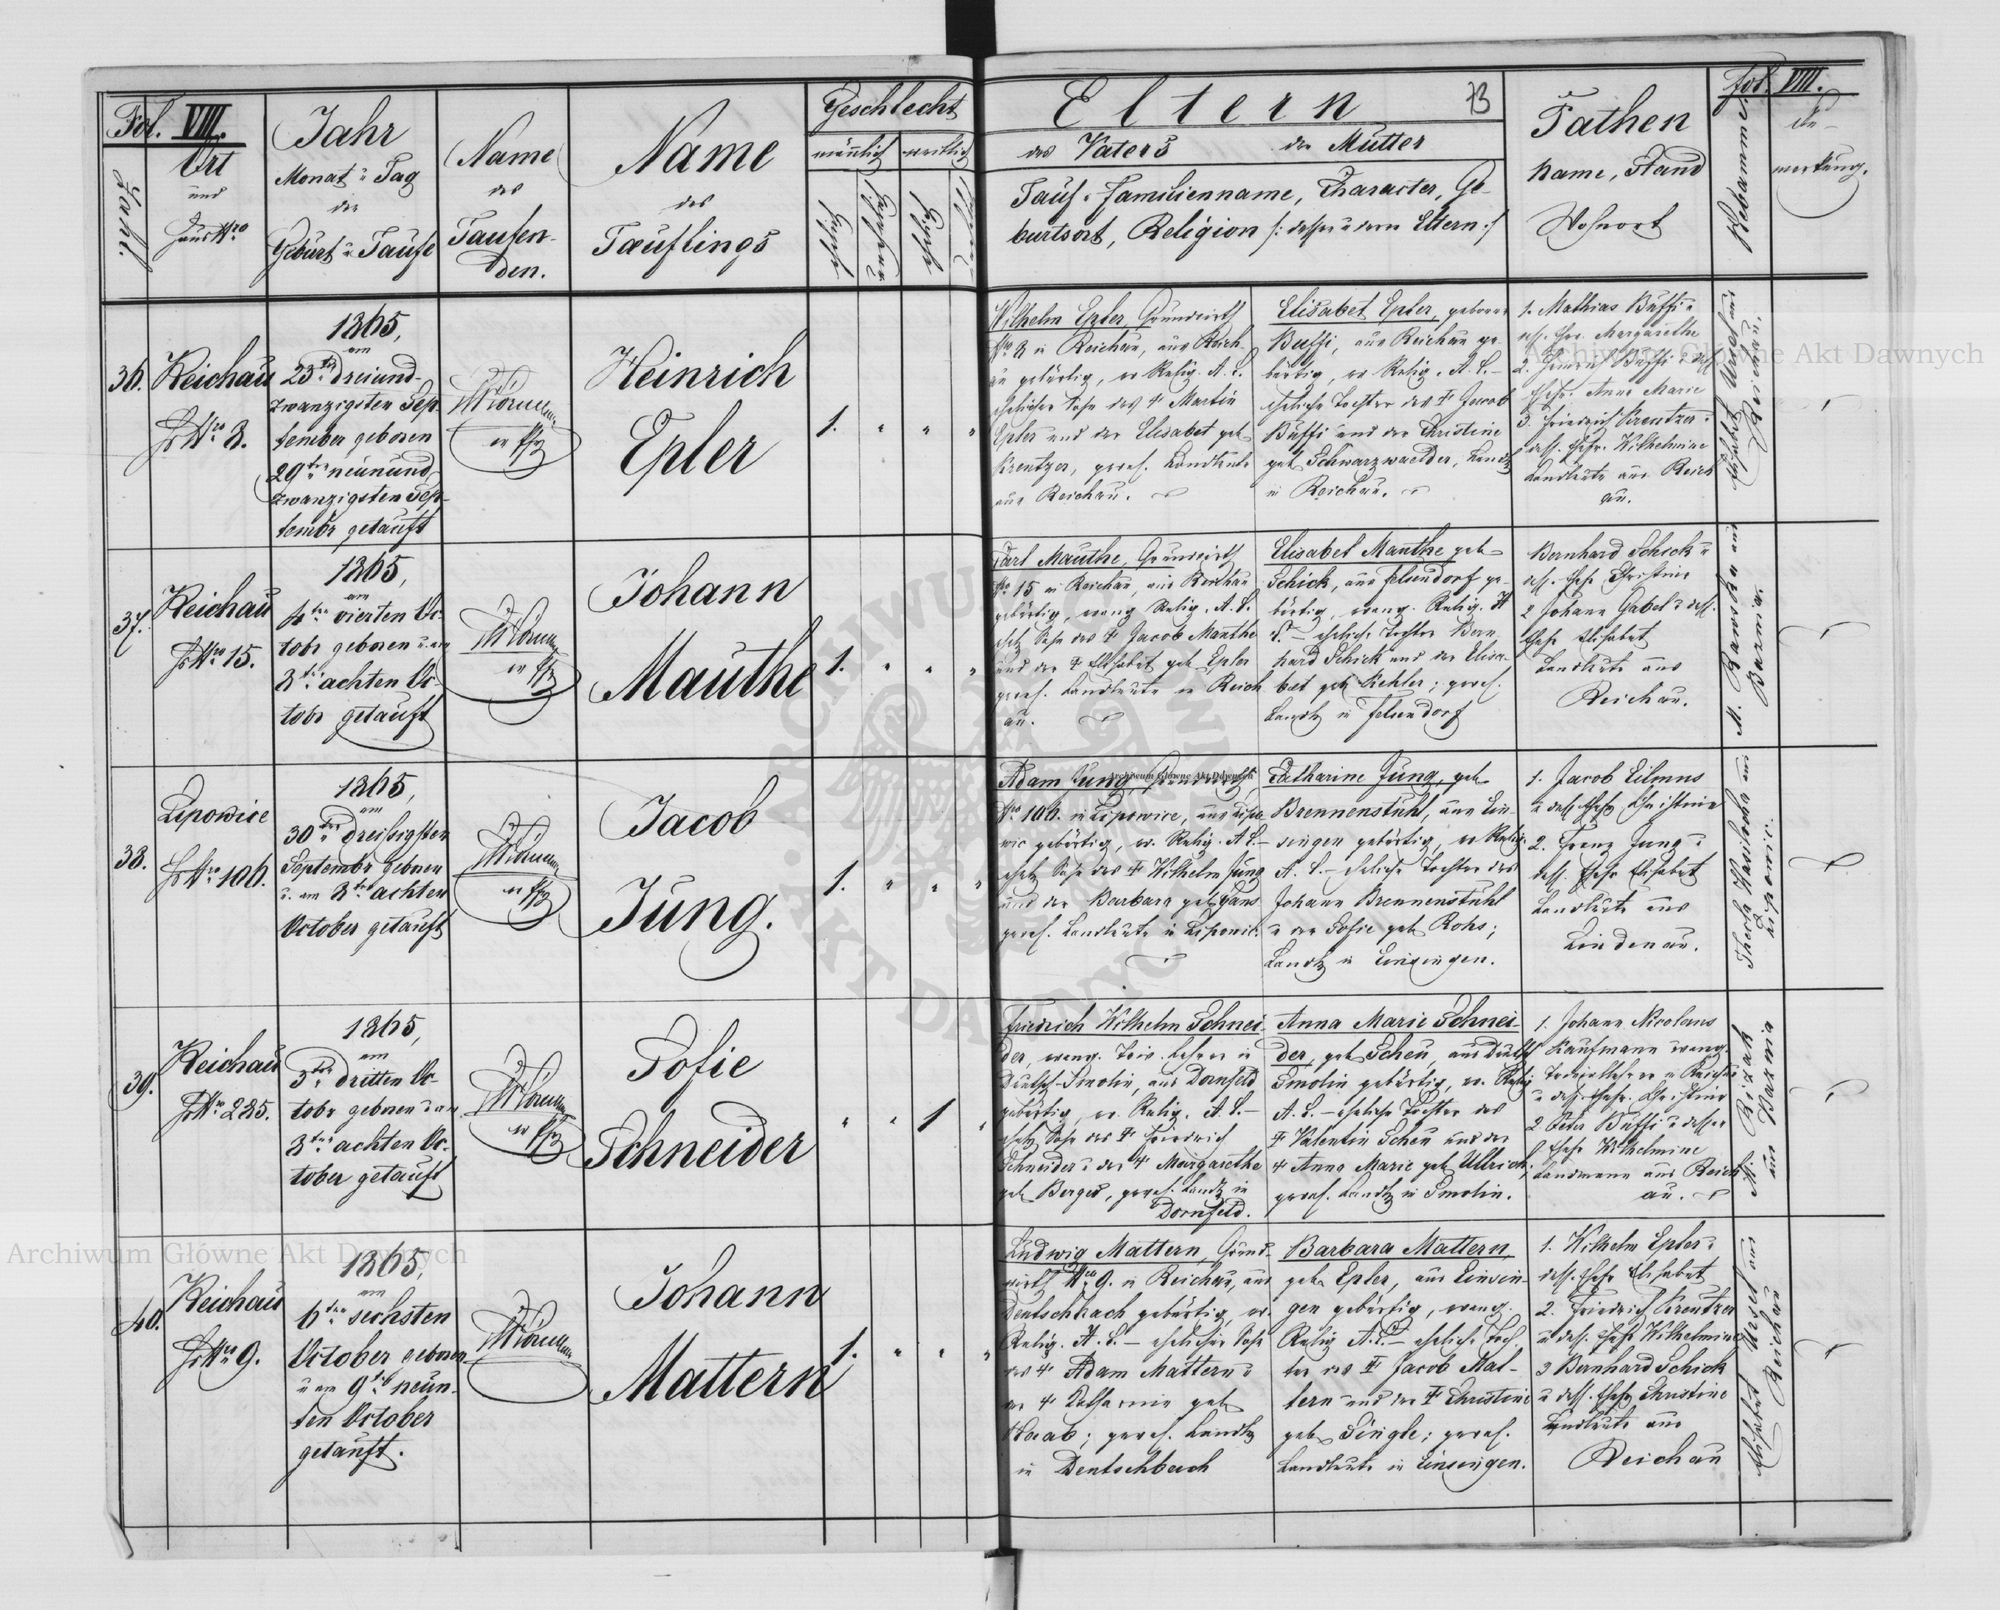 Fol. VIII.
Zahl.
Ort
und
Haus Nro
Jahr
Monat u Tag
der
Geburt u Taufe
Name
des
Taufen-
den.
Name
des
Täuflings
Geschlecht
männlich weiblich
Eltern
73
des Vaters der Mutter
Tauf- Familienname, Character, Ge-
burtsort, Religion /: dessen u deren Eltern :/
Pathen
Name, Stand
Wohnort
Hebamme.
fol. VIII.
Be-
merkung.
36.
Reichau
Hs Nro 8.
1865,
am
23ten dreiund-
zwanzigsten Sep-
tember geboren
29ten neunund-
zwanzigsten Sep-
tembr getauft
Heinrich
Epler
1.
Wilhelm Epler, Grundwirth
Nro 8 in Reichau, aus Reich-
au gebürtig, ev Relig. A. C.
ehelicher Sohn des † Martin
Epler und der Elisabet geb
Kreutzer, gewes. Landleute
aus Reichau.
Elisabet Epler, geborene
Buffi, aus Reichau ge-
bürtig, ev Relig. A. C. –
eheliche Tochter des † Jacob
Buffi und der Christine
geb Schwarzwaelder, Landlt
in Reichau.
1. Mathias Buffi u
dess. Ehe. Margarethe
2. Heinrich Buffi u dess
Ehefr. Anna Marie
3. Friedrich Kreutzer u
dess. Ehefr. Wilhelmine
Landleute aus Reich
au.
Elisabet Ursel aus
Reichau.
37.
Reichau
Hs Nro 15.
1865,
am
4ten vierten Oc-
tobr geboren u am
8ten achten Oc-
tobr getauft
Johann
Mauthe
1.
Carl Mauthe, Grundwirth
Nro 15 in Reichau, aus Reichau
gebürtig, evang Relig. A. C.
ehel Sohn des † Jacob Mauthe
und der † Elisabet geb Epler
gewes. Landleute in Reich
au.
Elisabet Mauthe geb
Schick, aus Felsendorf ge-
bürtig, evang. Relig. A
C. – eheliche Tochter Bern
hard Schick und der Elisa-
bet geb Kehler; gewes.
Landlt in Felsendorf
Bernhard Schick u
dess. Ehefr Christine
2 Johann Gabel u dess.
Ehefr Elisabet
Landleute aus
Reichau.
M. Rawska aus
Barwia.
38.
Lipowice
Hs Nro 106.
1865,
am
30ten dreisigsten
Septembr geboren
u. am 8ten achten
October getauft
Jacob
Jung.
1.
Adam Jung, Grundwirth,
Nro 106. in Lipowice, aus Lipo-
wic gebürtig, ev. Relig. A C. –
ehel Sohn des † Wilhelm Jung
und der Barbara geb Gans
gewes. Landleute in Lipowic.
Catharine Jung, geb
Brennenstuhl, aus Ein-
singen gebürtig, ev Relig.
A. C. – eheliche Tochter des
Johann Brennenstuhl
u der Sofie geb Rohs;
Landlt in Einsingen.
1. Jacob Eilmus
u dess Ehefr Christine
2. Franz Jung u
dess. Ehefr Elisabet
Landleute aus
Lindenau.
Thecla Wasiloska aus
Lipowic.
39.
Reichau
Hs Nro 285.
1865,
am
3ten dritten Oc-
tobr geboren u am
8ten achten Oc-
tober getauft
Sofie
Schneider
1
Friedrich Wilhelm Schnei-
der, evang. Triv. Lehrer in
Deutsch-Smolin, aus Dornfeld
gebürtig, ev Relig. A. C. –
ehel Sohn des † Friedrich
Schneider u der † Margarethe
geb Berger, gewes. Landlt in
Dornfeld.
Anna Marie Schnei-
der, geb Scheu, aus Deutsch
Smolin gebürtig, ev. Relig
A. C. – eheliche Tochter des
† Valentin Scheu und der
† Anna Marie geb Ullrich;
gewes. Landlt in Smolin.
1. Johann Nicolaus
Kaufmann evang.
Triviallehrer in Reichau
u dess. Ehefr. Christine
2 Peter Buffi u dessen
Ehefr Wilhelmine
Landmann aus Reich
au.
N. Rizak
aus Barwia
40.
Reichau
Hs Nro 9.
1865,
am
6ten sechsten
October geboren
u am 9ten neun-
ten October
getauft.
Johann
Mattern
1.
Ludwig Mattern, Grund-
wirth Nro 9. in Reichau, aus
Deutschbach gebürtig, ev.
Relig. A. C. – ehelicher Sohn
des † Adam Mattern u
der † Catharine geb
Haab; gewes. Landlt
in Deutschbach
Barbara Mattern
geb Epler, aus Einsin-
gen gebürtig, evang.
Relig A. C. – eheliche Toch-
ter des † Jacob Mat-
tern und der † Christine
geb Single; gewes.
Landleute in Einsingen.
1. Wilhelm Epler u
dess. Ehefr Elisabet
2. Friedrich Kreutzer
u dess. Ehefr Wilhelmine
3 Bernhard Schick
u dess. Ehefr Christine
Landleute aus
Reichau
Elisabet Ursel aus
Reichau
Archiwum Główne Akt Dawnych
Archiwum Główne Akt Dawnych
Archiwum Główne Akt Dawnych